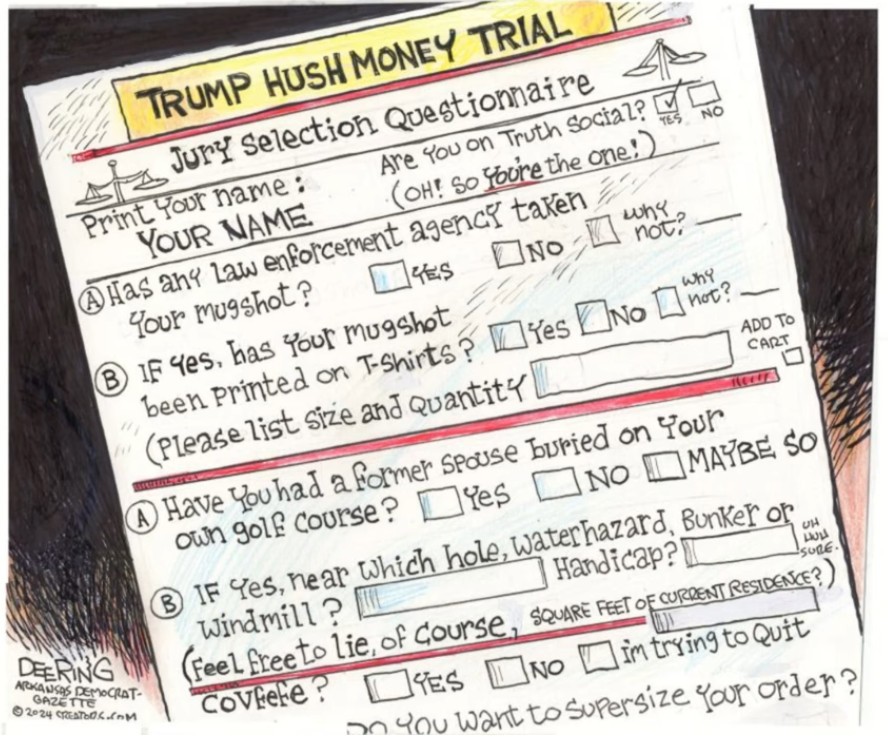 TRUMP HUSH MONEY TRIAL
Jury Selection Questionnaire
Are You on Truth Social? YES NO
(OH! So You're the one!)
Print Your name:
YOUR NAME
A Has any law enforcement agency taken
Your mugshot? YES NO Why not?
B IF Yes, has Your mugshot
been printed on T-Shirts? Yes No Why not?
(Please list size and Quantity
ADD TO CART
A Have You had a former spouse buried on Your
own golf course? Yes NO MAYBE SO
B IF Yes, near which hole, waterhazard, Bunker or
windmill? Handicap? UH HUH SURE.
(Feel free to lie, of course, SQUARE FEET OF CURRENT RESIDENCE?)
Covfefe? YES NO im trying to Quit
Do You Want to Supersize Your order?
DEERING
ARKANSAS DEMOCRAT-
GAZETTE
© 2024 CREATORS.COM